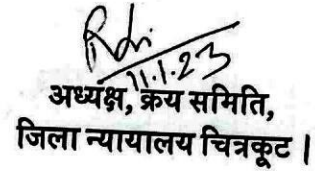 11.1.23
अध्यक्ष, क्रय समिति,
जिला न्यायालय चित्रकूट |